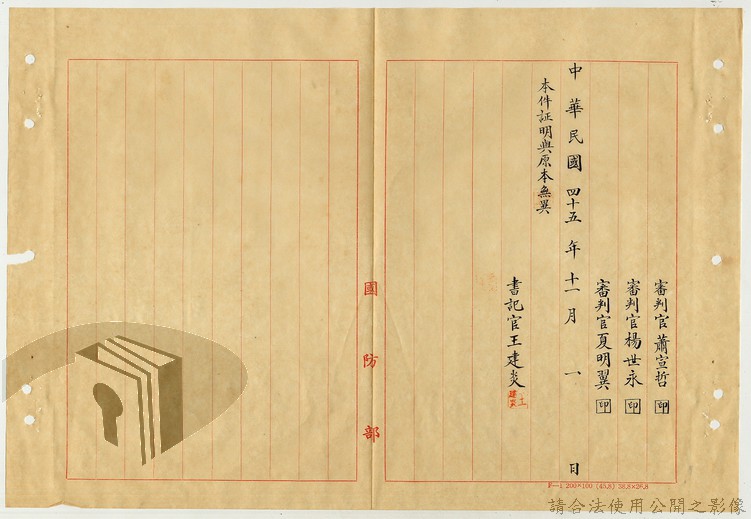 審判官蕭宣哲 印
審判官楊世永 印
審判官夏明翼 印
中華民國四十五年十一月一日
本件証明與原本無異
書記官王建炎
國防部
F—1 200×100 (45.8) 38.8×26.8
請合法使用公開之影像